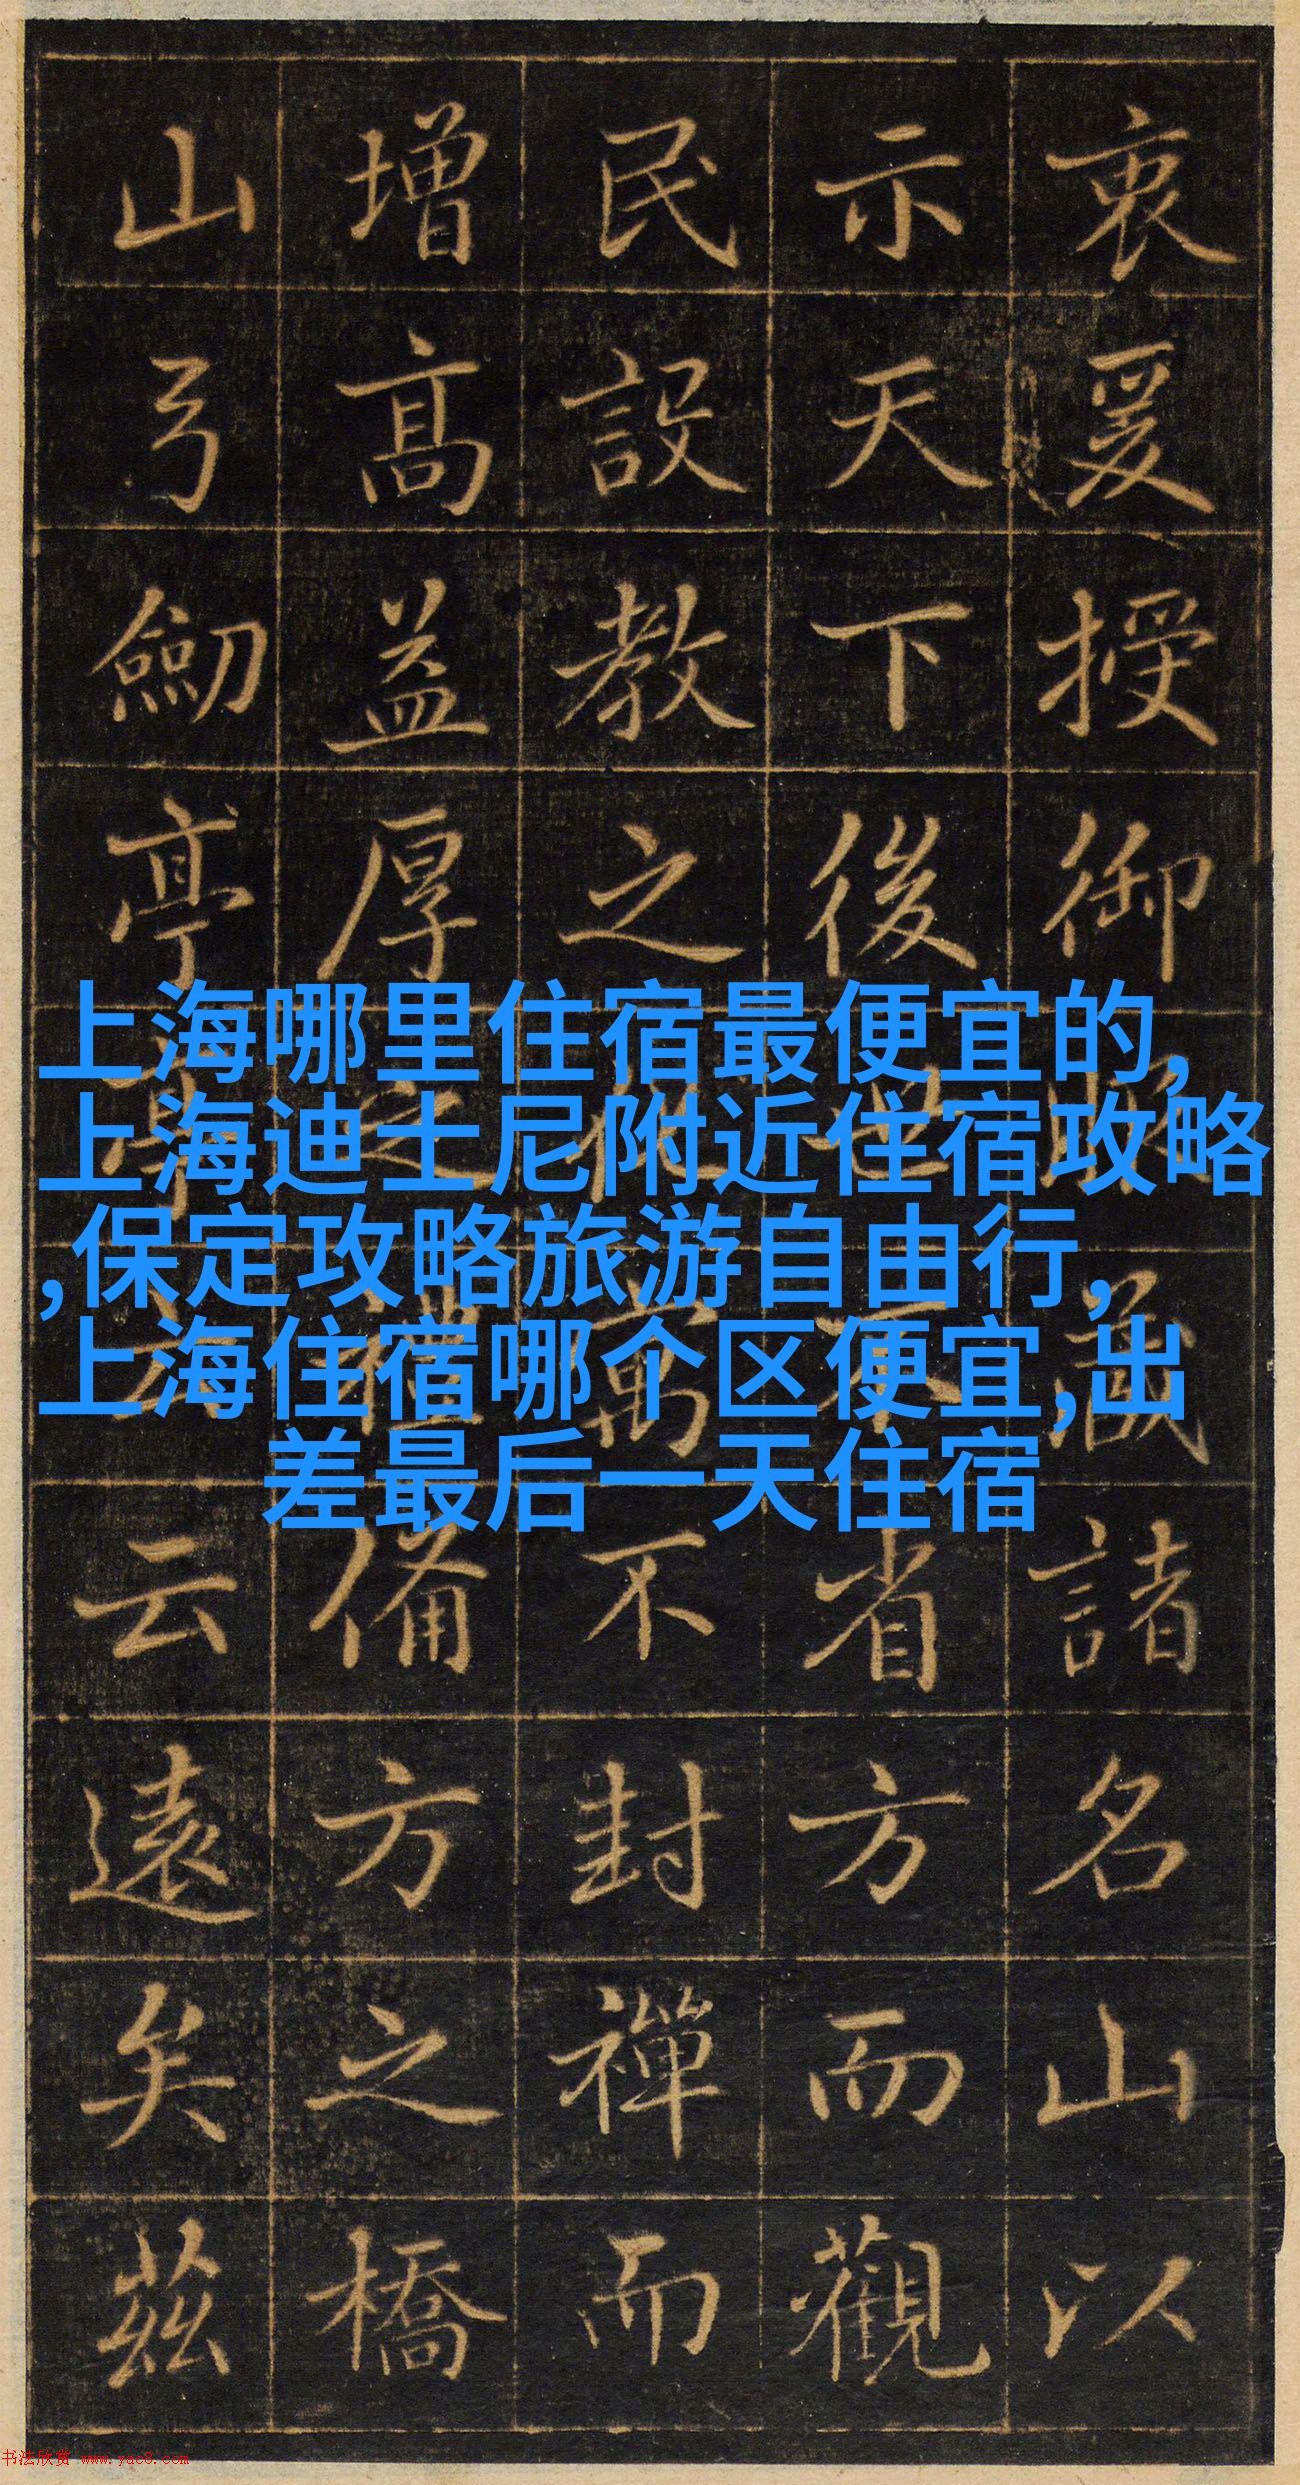 衷爰授御諸名山以
示天下後世省方而觀
民設教之萬不封禪而
增高益厚之禮備方之橋
山弓劒亭亭云遠矣茲
上海哪里住宿最便宜的,
上海迪士尼附近住宿攻略
,保定攻略旅游自由行,
上海住宿哪个区便宜,出
差最后一天住宿
书法欣赏 www.yac8.com